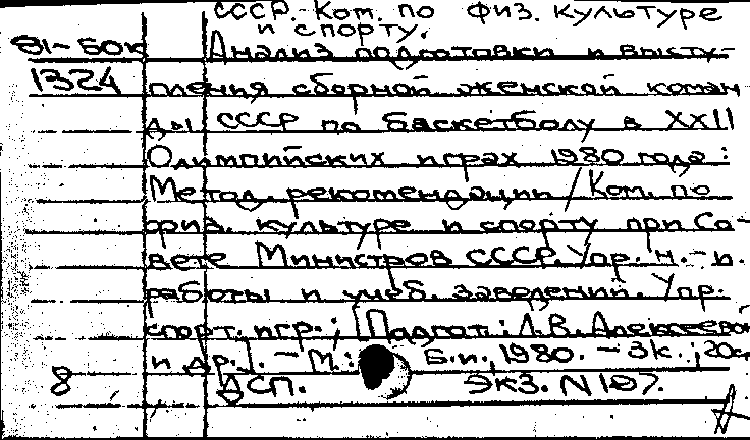 СССР. Ком. по физ. культуре
и спорту.
81-БОК Анализ подготовки и высту-
1324 пления сборной женской коман
ды СССР по баскетболу в XXII
Олимпийских играх 1980 года:
Метод. рекомендации / Ком. по
физ. культуре и спорту при Со-
вете Министров СССР. Упр. н.-и.
работы и учеб. заведений. Упр.
спорт. игр.; [Подгот.: Л.В. Алексеевой
и др.]. - М.: Б.и., 1980. - 3к.; 20см
8 ДСП. Экз. N 107.